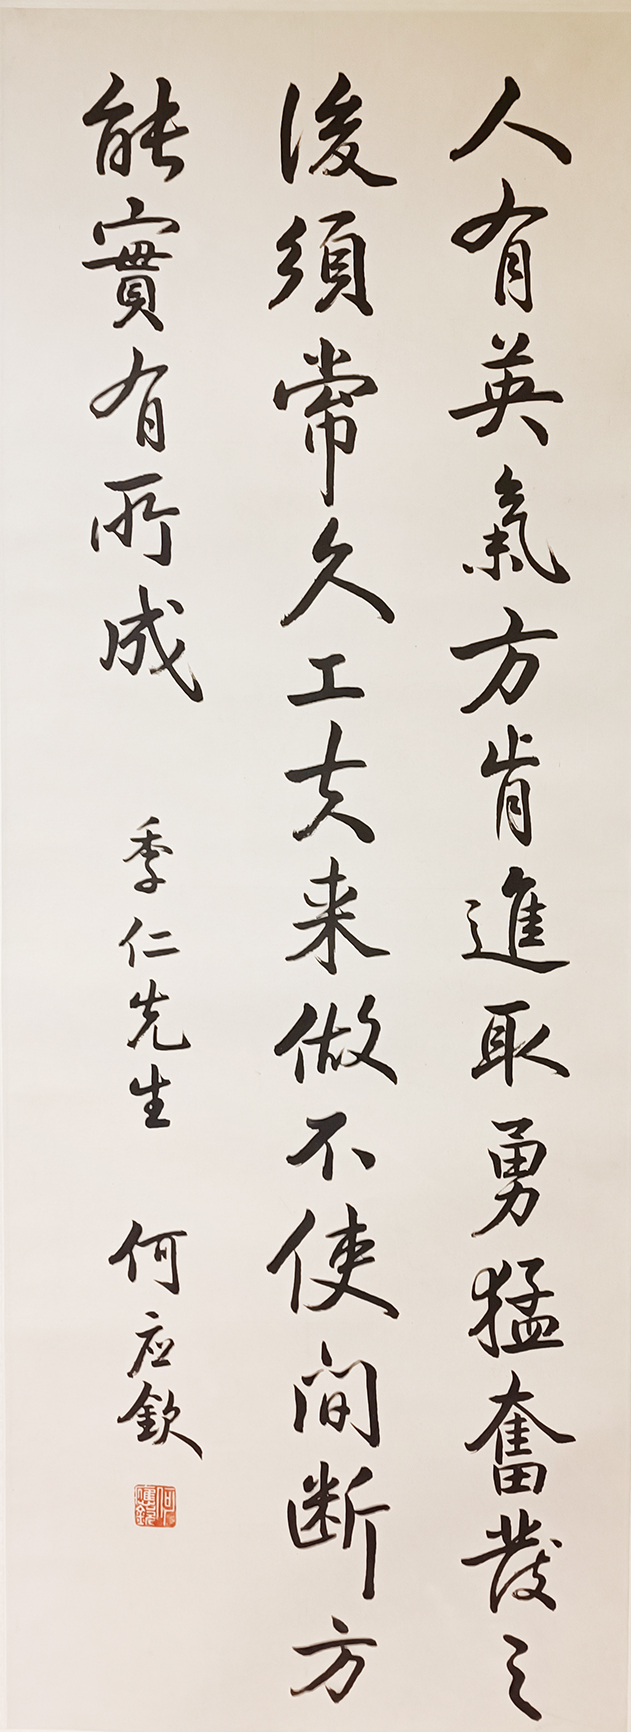 人有英氣方肯進取勇猛奮發之
後須常久工夫来做不使间断方
能實有所成
季仁先生 何应欽
何應欽